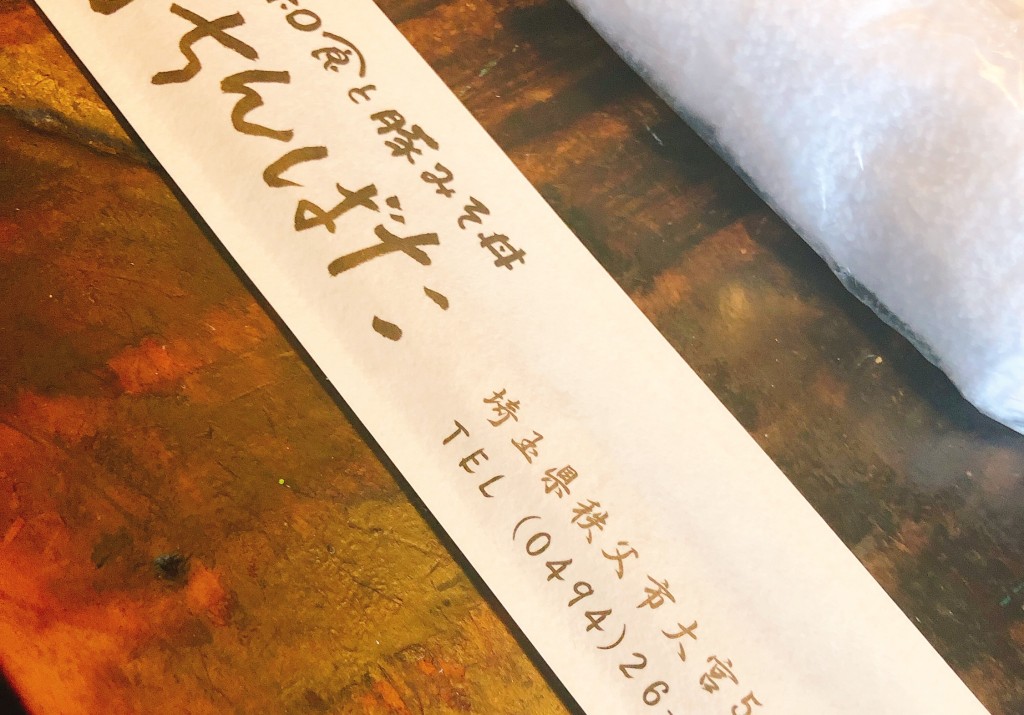 和食と豚みそ丼
ちんばた
埼玉県秩父市大宮5
TEL (0494)26-